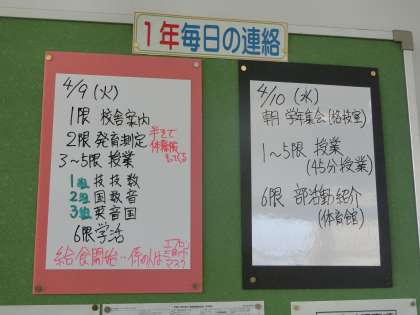 1年毎日の連絡
4/9(火)
1限 校舎案内
2限 発育測定
半そで
体育館
3~5限 授業
1組 技技数
2組 国数音
3組 英音国
6限 学活
給食開始…係の人は
エプロン
マスク
4/10(水)
朝 学年集会(格技室)
1~5限 授業
(45分授業)
6限 部活動紹介
(体育館)